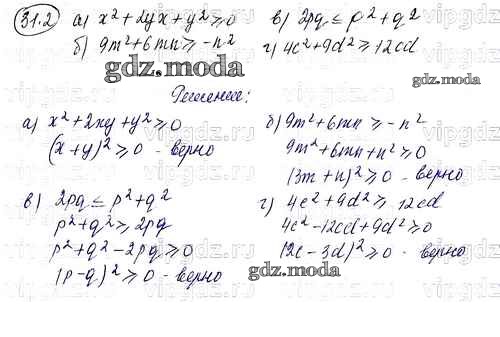 31.2 а) x² + 2yx + y² ≥ 0 в) 2pq ≤ p² + q²
б) 9m² + 6mn ≥ -n² г) 4c² + 9d² ≥ 12cd
gdz.moda
gdz.moda
Решение:
а) x² + 2xy + y² ≥ 0
(x + y)² ≥ 0 - верно
б) 9m² + 6mn ≥ -n²
9m² + 6mn + n² ≥ 0
(3m + n)² ≥ 0 - верно
в) 2pq ≤ p² + q²
p² + q² ≥ 2pq
p² + q² - 2pq ≥ 0
(p - q)² ≥ 0 - верно
г) 4c² + 9d² ≥ 12cd
4c² - 12cd + 9d² ≥ 0
(2c - 3d)² ≥ 0 - верно
gdz.moda
vipgdz.ru